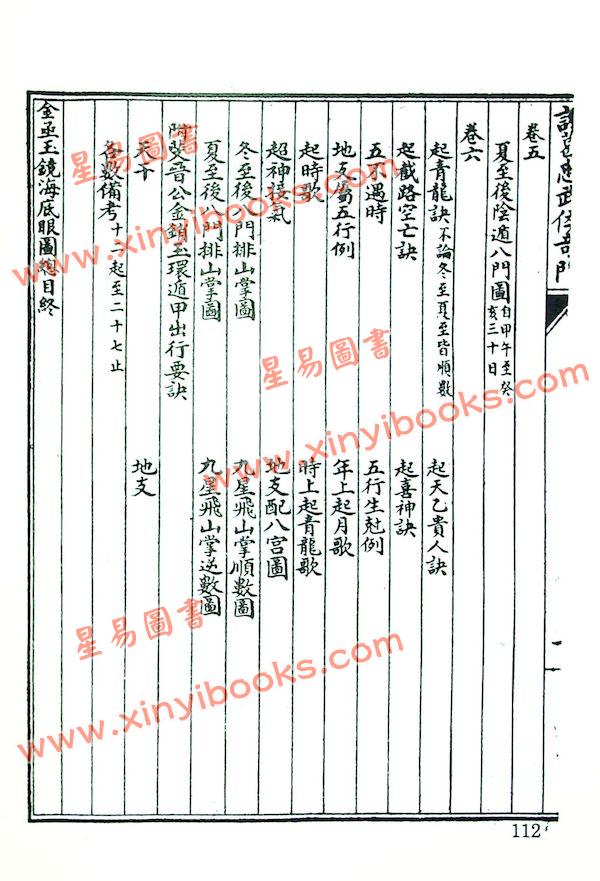 卷五
夏至後陰遁八門圖 自甲午至癸亥三十日
卷六
起青龍訣 不論冬至夏至皆順數 起天乙貴人訣
起截路空亡訣 起喜神訣
五不遇時 五行生尅例
地支屬五行例 年上起月歌
起時歌 時上起青龍歌
超神接氣 地支配八宮圖
冬至後八門排山掌圖 九星飛山掌順數圖
夏至後八門排山掌圖 九星飛山掌逆數圖
附斐晉公金鎖玉環遁甲出行要訣
天干 地支
各數備考 十二起至二十七止
金函玉鏡海底眼圖總目終
一
112
星易圖書
www.xinyibooks.com
星易圖書
www.xinyibooks.com
星易圖書
www.xinyibooks.com